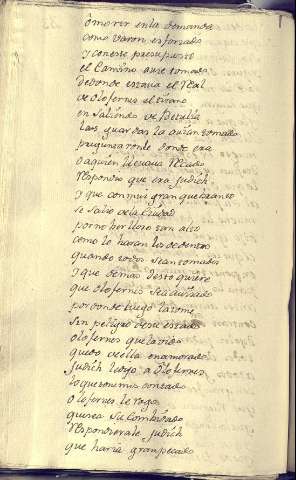 o morir en la demanda
como varon esforzado
y con este presupuesto
el camino aue tomado
de donde estaua el Real
de olofernes el tirano
en saliendo de Betulia
las guardas la auian tomado
preguntaronle donde era
o a quien lleuaua Recado
Respondio que era Judich
y que con mui gran quebranto
se salio de la ciudad
por no her lloro tan alto
como le haran los de dentro
quando todos sean tomados
y que demas desto quiere
que olofernes sea auisado
por donde luego la tome
sin peligro de su estado
olofernes que la vido
quedo de ella enamorado
Judich luego a Olofernes
lo que tenemos contado
olofernes le rogo
quisea su combidado
Respondierale Judich
que haria gran pecado